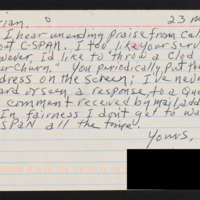 rian. 23 m
I hear unending praise from Cal
out C-SPAN. I too like your serv
wever, I'd like to "throw a Clod
your Churn." You periodically put th
dress on the screen; I've never
ard or seen a response, to a Que
comment received by mail, add
In fairness I don't get to wa
SPAN all the time.
Yours,